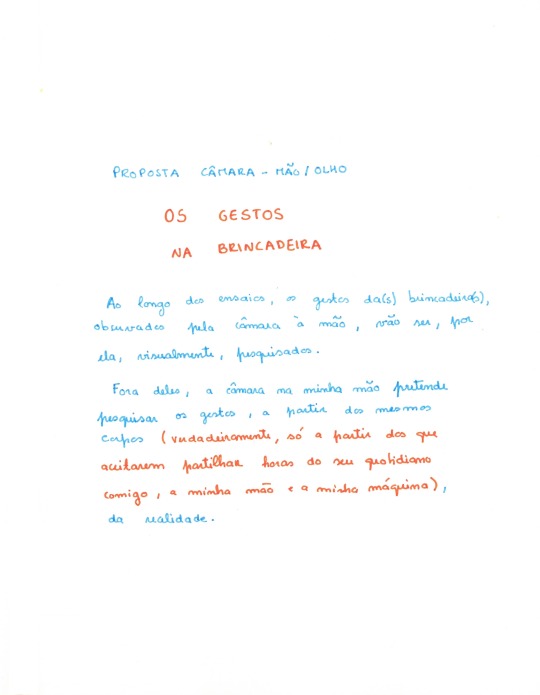 PROPOSTA CÂMARA - MÃO/OLHO
OS GESTOS
NA BRINCADEIRA
Ao longo dos ensaios, os gestos da(s) brincadeira(s),
observados pela câmara à mão, vão ser, por
ela, visualmente, pesquisados.
Fora deles, a câmara na minha mão pretende
pesquisar os gestos, a partir dos mesmos
corpos (verdadeiramente, só a partir dos que
aceitarem partilhar horas do seu quotidiano
comigo, a minha mão e a minha máquina),
da realidade.